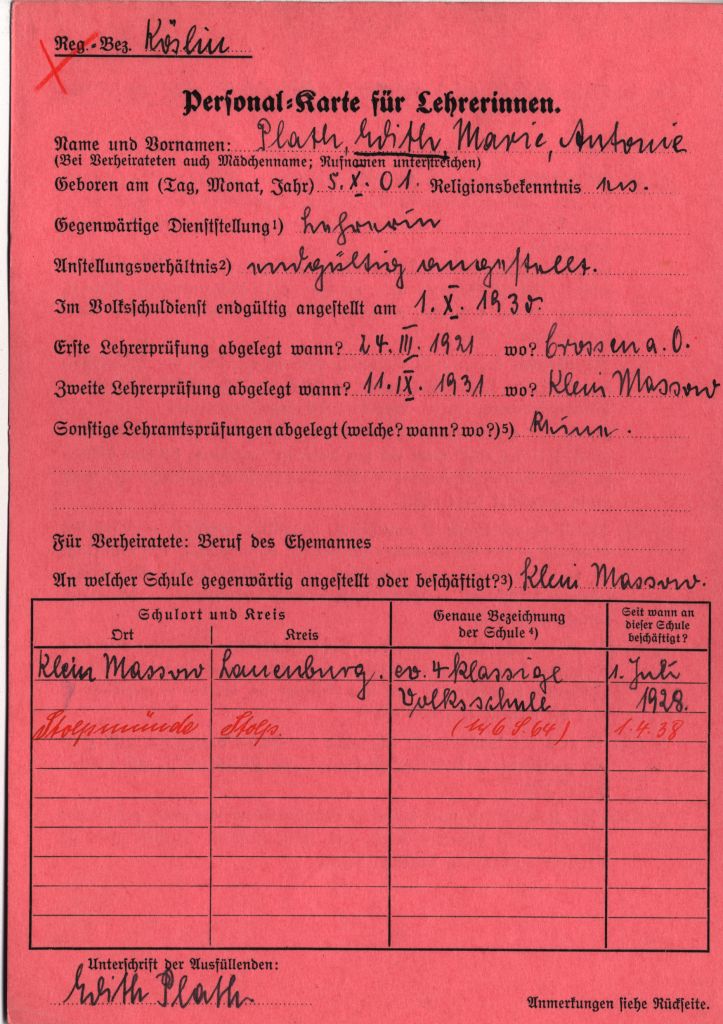 Reg.-Bez. Köslin
Personal-Karte für Lehrerinnen.
Name und Vornamen: Plath, Edith, Marie, Antonie
(Bei Verheirateten auch Mädchenname; Rufnamen unterstreichen)
Geboren am (Tag, Monat, Jahr) 5. X. 01. Religionsbekenntnis
Gegenwärtige Dienststellung1) Lehrerin
Anstellungsverhältnis2) endgültig angestellt.
Im Volksschuldienst endgültig angestellt am 1. X. 193
Erste Lehrerprüfung abgelegt wann? 24. III. 1921 wo? Crossen a. O.
Zweite Lehrerprüfung abgelegt wann? 11. IX. 1931 wo? Klein Massow
Sonstige Lehramtsprüfungen abgelegt (welche? wann? wo?)5) Keine.
Für Verheiratete: Beruf des Ehemannes
An welcher Schule gegenwärtig angestellt oder beschäftigt?3) Klein Massow.
Schulort und Kreis
Ort Kreis
Genaue Bezeichnung
der Schule 4)
Seit wann an
dieser Schule
beschäftigt?
Klein Massow Lauenburg. ev. 4 klassige 1. Juli
Volksschule 1928.
Stolpmünde Stolp. (146 S. 64) 1.4.38
Unterschrift der Ausfüllenden:
Edith Plath.
Anmerkungen siehe Rückseite.